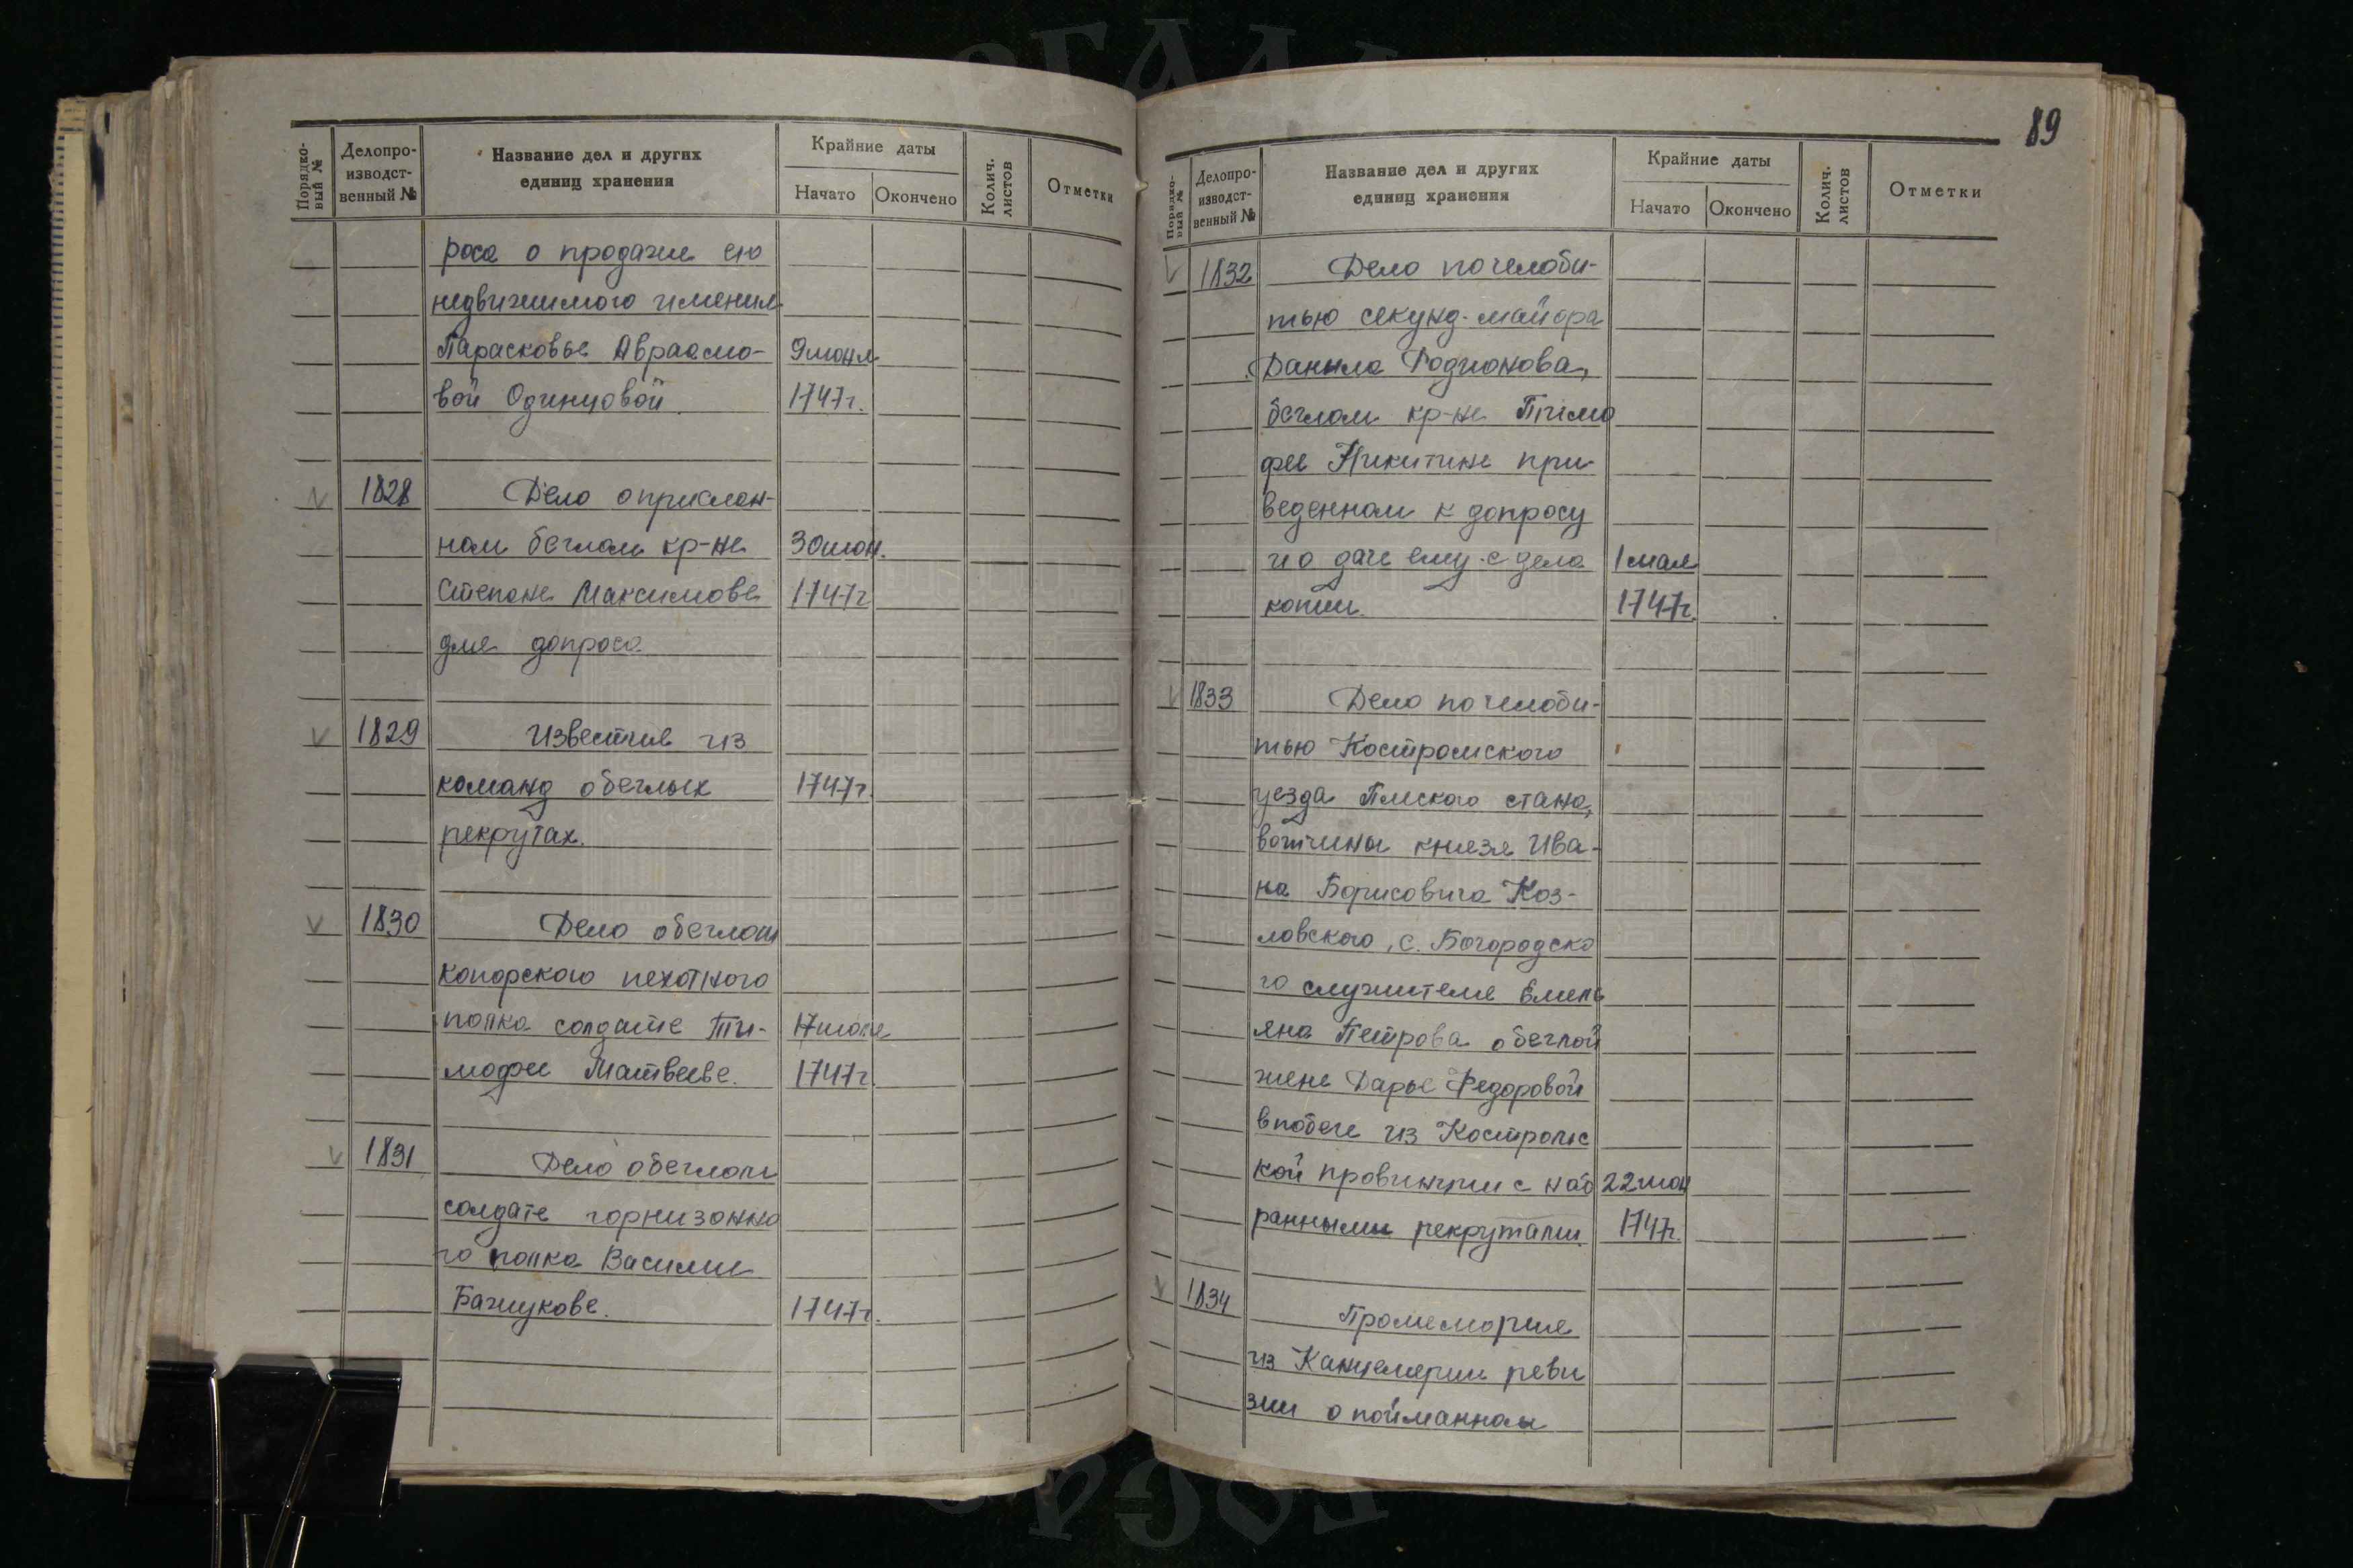 Порядко-
вый №
Делопро-
изводст-
венный №
Название дел и других
единиц хранения
Крайние даты
Начато
Окончено
Колич.
листов
Отметки
роса о продаже ею
недвижимого имения
Парасковье Авраамо-
вой Одинцовой.
1747г.
V 1828 Дело о прислан-
ном беглом кр-не
Степане Максимове 1747г
для допроса
V 1829 Известие из
команд о беглых 1747г.
рекрутах.
V 1830 Дело о беглом
Копорского пехотного
полка солдате Ти-
мофее Матвееве. 1747г
V 1831 Дело о беглом
солдате горнизонно
го полка Василии
Бажукове. 1747г.
89
Порядко-
вый №
Делопро-
изводст-
венный №
Название дел и других
единиц хранения
Крайние даты
Начато
Окончено
Колич.
листов
Отметки
V 1832 Дело по челоби-
тью секунд-майора
Данила Родионова,
беглом кр-не Тимо
фее Никитине при-
веденном к допросу
и о даче ему с дела 1 мая
копии. 1747г.
V 1833 Дело по челоби-
тью Костромского
уезда Плеского стана,
вотчины князя Ива-
на Борисовича Коз-
ловского, с. Богородско
го служителя Емель
яна Петрова о беглой
жене Дарье Федоровой
в побеге из Костромс
кой провинции с наб 22 июн
ранными рекрутами. 1747г.
V 1834 Промемория
из Канцелярии реви
зии о пойманном